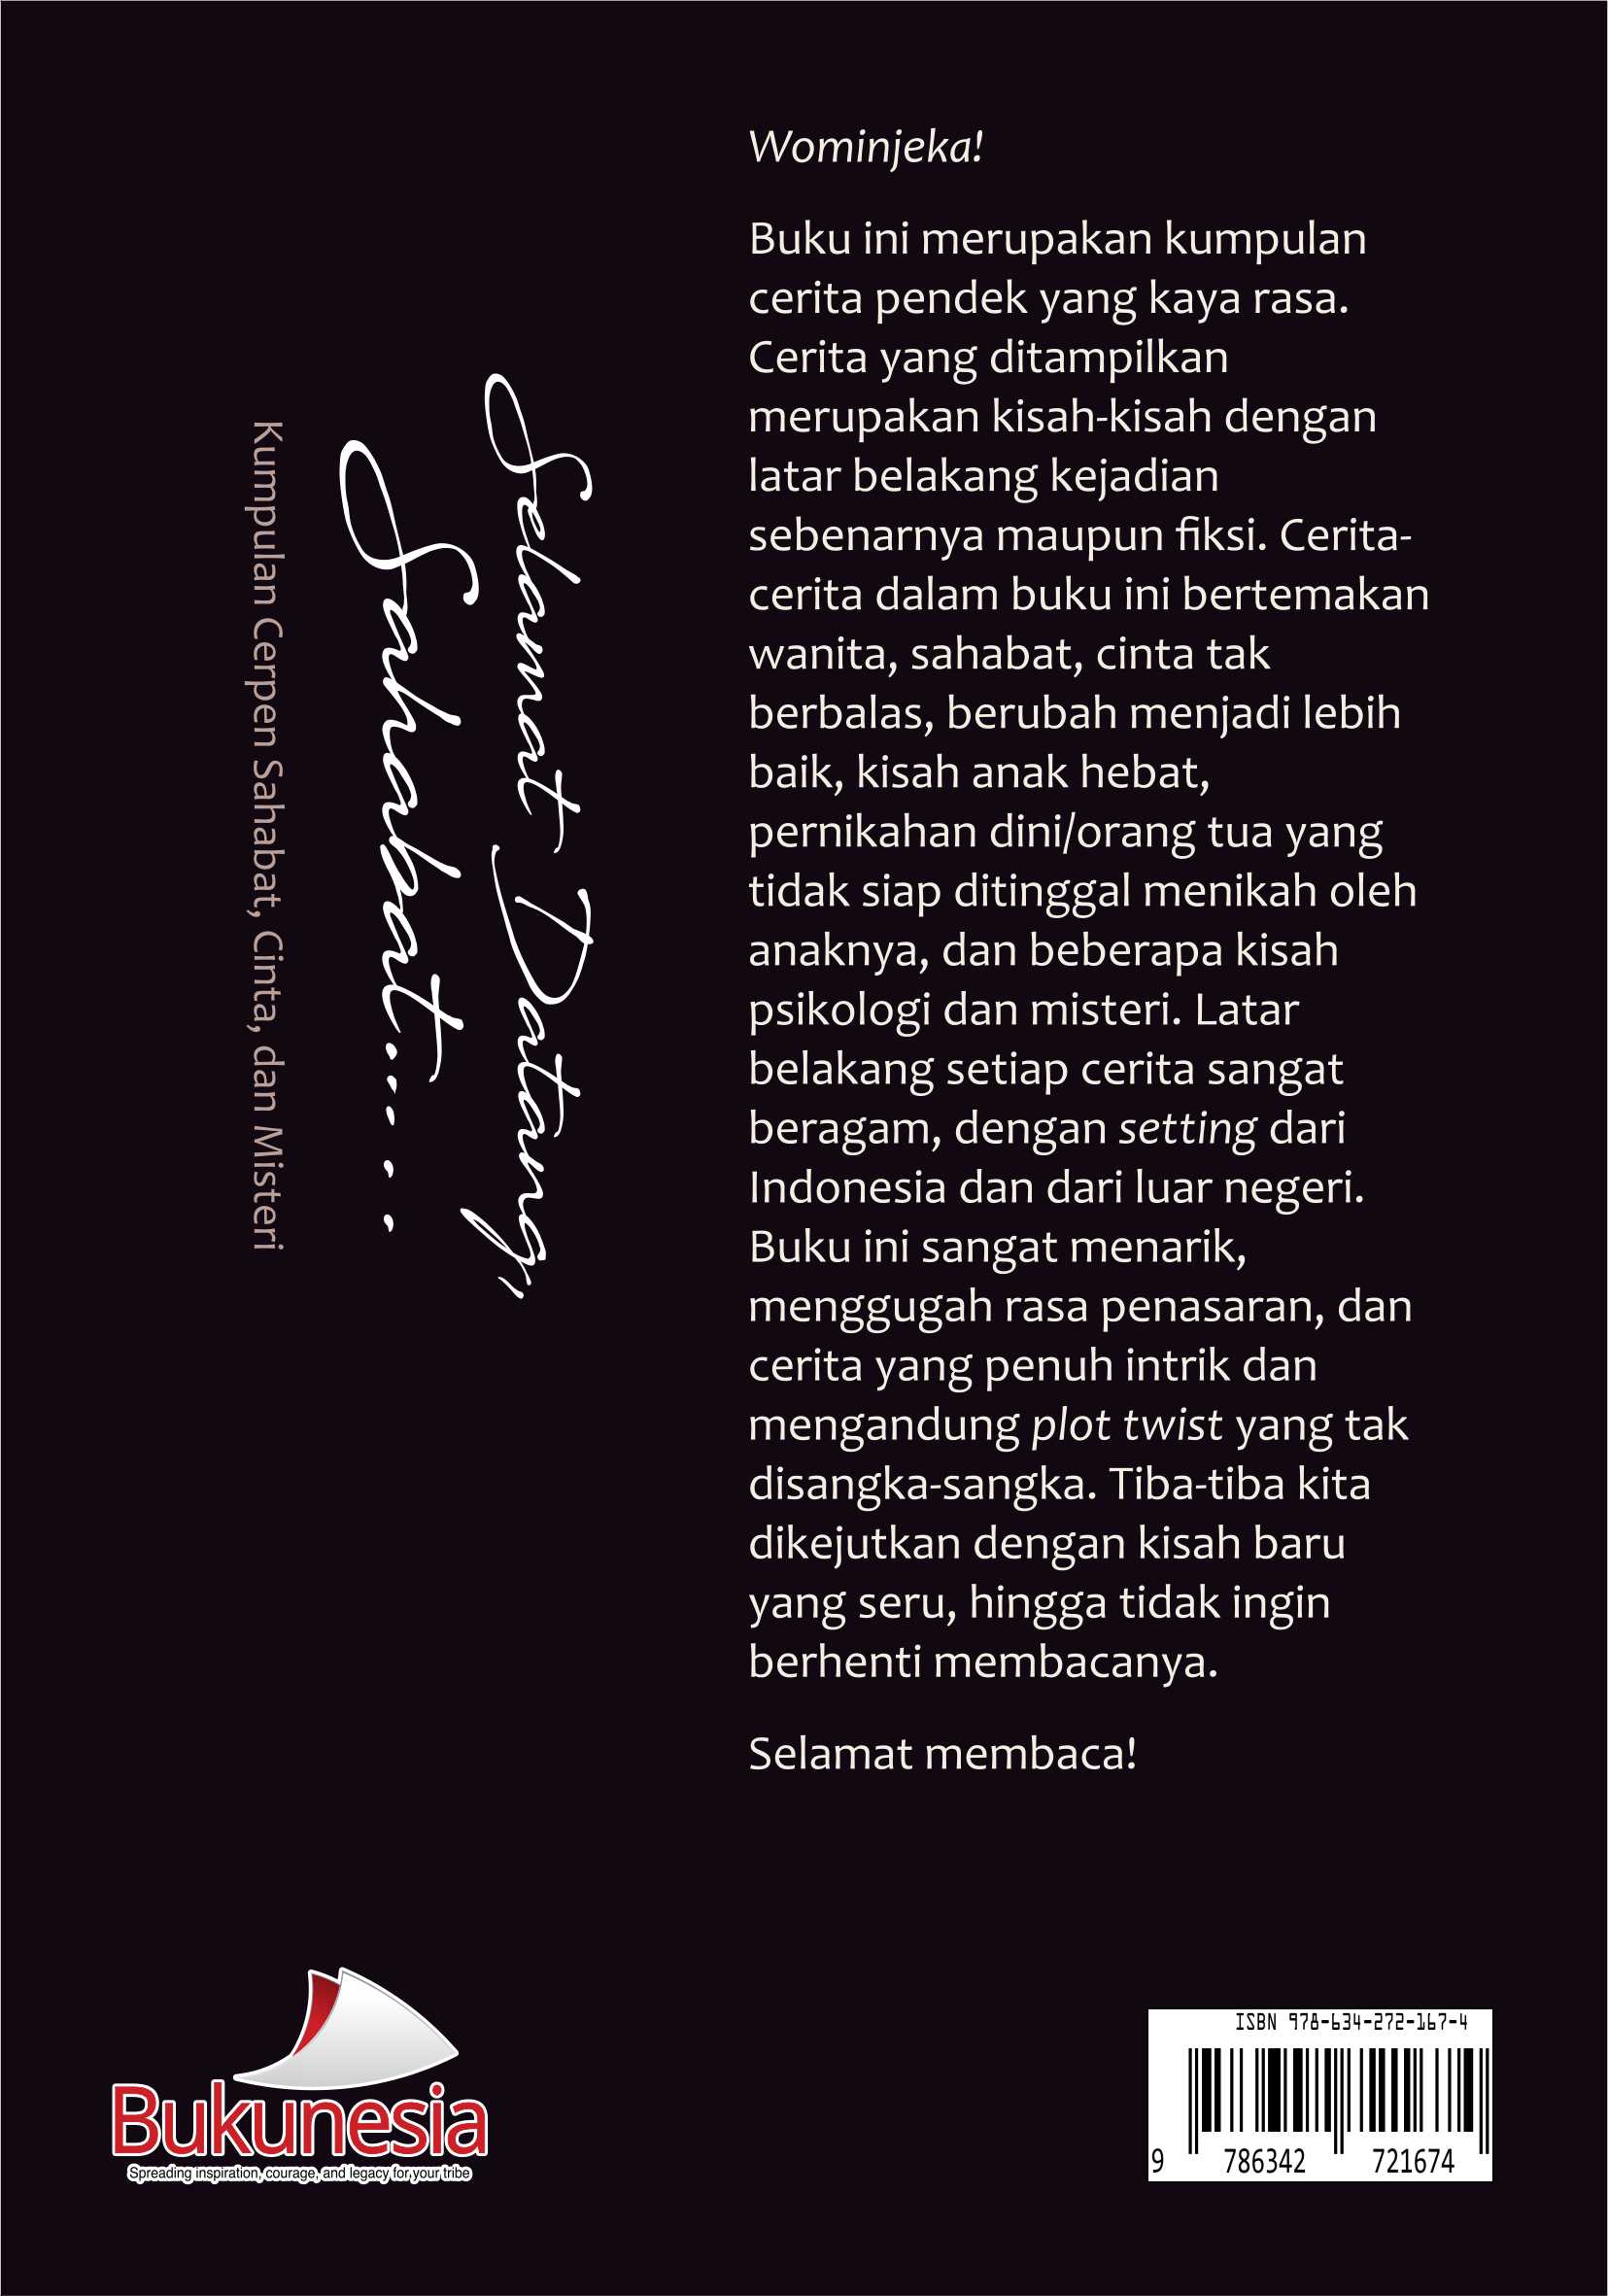 Wominjeka!
Buku ini merupakan kumpulan
cerita pendek yang kaya rasa.
Cerita yang ditampilkan
merupakan kisah-kisah dengan
latar belakang kejadian
sebenarnya maupun fiksi. Cerita-
cerita dalam buku ini bertemakan
wanita, sahabat, cinta tak
berbalas, berubah menjadi lebih
baik, kisah anak hebat,
pernikahan dini/orang tua yang
tidak siap ditinggal menikah oleh
anaknya, dan beberapa kisah
psikologi dan misteri. Latar
belakang setiap cerita sangat
beragam, dengan setting dari
Indonesia dan dari luar negeri.
Buku ini sangat menarik,
menggugah rasa penasaran, dan
cerita yang penuh intrik dan
mengandung plot twist yang tak
disangka-sangka. Tiba-tiba kita
dikejutkan dengan kisah baru
yang seru, hingga tidak ingin
berhenti membacanya.
Selamat membaca!
Selamat Datang,
Sahabat.....
Kumpulan Cerpen Sahabat, Cinta, dan Misteri
Bukunesia
Spreading inspiration, courage, and legacy for your tribe
ISBN 978-634-272-167-4
9 786342 721674